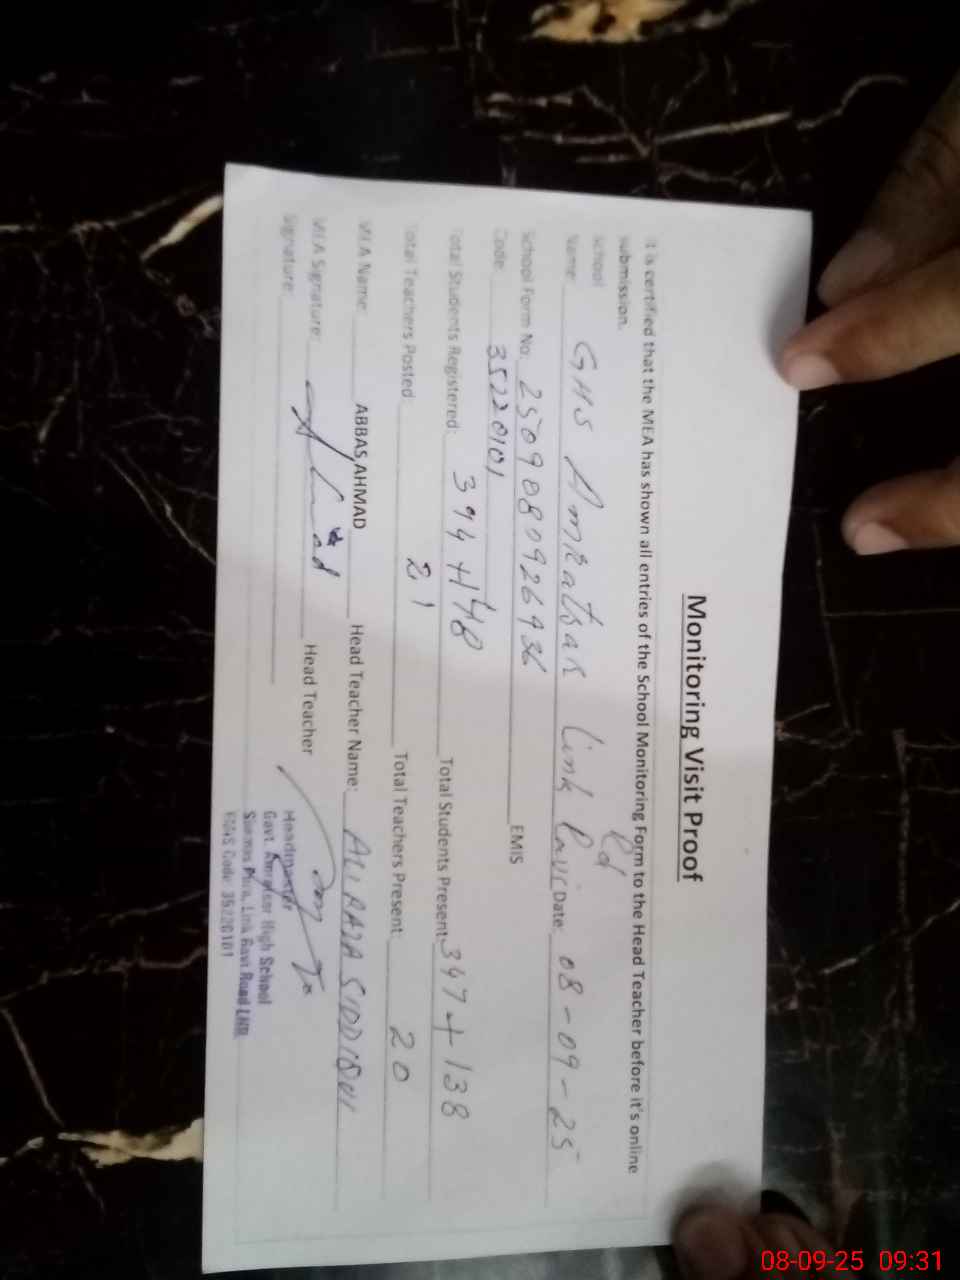 Monitoring Visit Proof
It is certified that the MEA has shown all entries of the School Monitoring Form to the Head Teacher before it's online
submission.
School Rd
Name: GHS Amratsar Link Ravi Date: 08-09-25
School Form No: 250908092693 EMIS
Code: 35220101
Total Students Registered: 394+148 Total Students Present: 347+138
Total Teachers Posted: 21 Total Teachers Present: 20
MEA Name: ABBAS AHMAD Head Teacher Name: ALI RAZA SIDDIQUI
MEA Signature: Ahmad Head Teacher
Signature:
Headmaster
Govt. Amratser High School
Link Ravi Road LHR
EMIS Code: 35220101
08-09-25 09:31